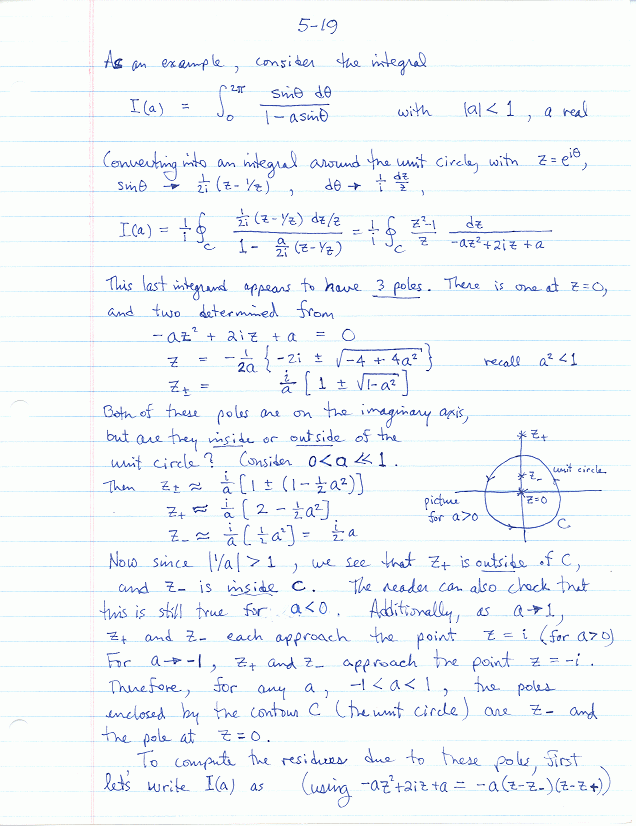 5-19
As an example, consider the integral
I(a) = ∫₀^{2π} sinθ dθ / (1 - a sinθ) with |a| < 1, a real
Converting into an integral around the unit circle, with z = e^{iθ},
sinθ → 1/2i (z - 1/z), dθ → 1/i dz/z,
I(a) = 1/i ∮_C [1/2i (z - 1/z) dz/z] / [1 - a/2i (z - 1/z)] = 1/i ∮_C (z²-1)/z dz/(-az²+2iz+a)
This last integrand appears to have 3 poles. There is one at z=0,
and two determined from
-az² + 2iz + a = 0
z = -1/2a { -2i ± √(-4 + 4a²) } recall a² < 1
z± = i/a [ 1 ± √(1-a²) ]
Both of these poles are on the imaginary axis,
but are they inside or outside of the
unit circle? Consider 0 < a ≪ 1.
Then z± ≈ i/a [1 ± (1 - ½a²)]
z+ ≈ i/a [ 2 - ½a² ]
z- ≈ i/a [ ½a² ] = i/2 a
z+
z-
unit circle
z=0
C
picture
for a>0
Now since |1/a| > 1, we see that z+ is outside of C,
and z- is inside C. The reader can also check that
this is still true for a<0. Additionally, as a→1,
z+ and z- each approach the point z = i (for a>0)
For a→-1, z+ and z- approach the point z = -i.
Therefore, for any a, -1<a<1, the poles
enclosed by the contour C (the unit circle) are z- and
the pole at z=0.
To compute the residues due to these poles, first
let's write I(a) as (using -az²+2iz+a = -a(z-z-)(z-z+))